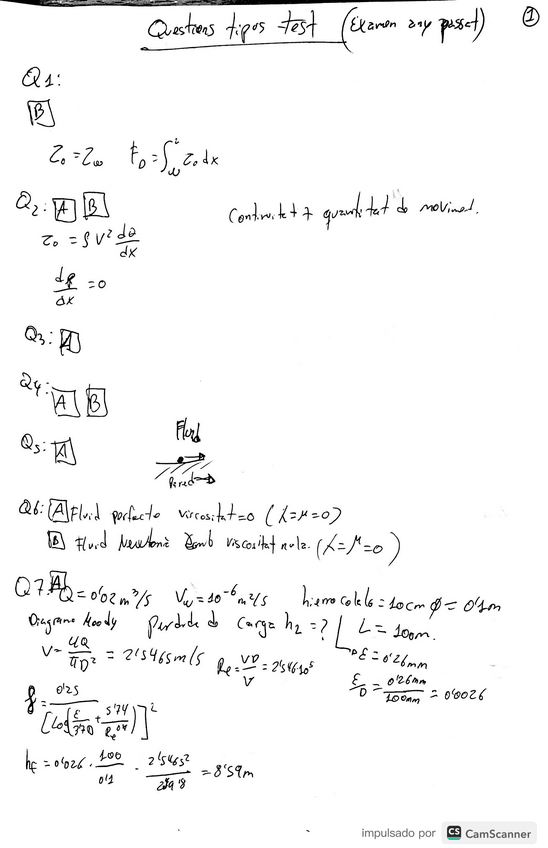 Questions tipos test (Examen any passat) 1
Q1:
B
τ₀ = τω F_D = ∫ τ₀ dx
Q2: A B Continuitat + quantitat de moviment.
τ₀ = ρ V² dθ/dx
dp/dx = 0
Q3: A
Q4: A B
Fluid
Q5: A
Pared
Q6: A Fluid perfecto viscositat=0 (λ=μ=0)
B Fluid Newtonià amb viscositat nula. (λ=μ=0)
Q7: A Q=0'02 m³/s Vω=10⁻⁶ m²/s hierro colado=10cm ϕ=0'1m
Diagrama Moody perdida de carga h₂=? L=100m.
V=4Q/πD² = 2'5465m/s Re=VD/V=2'546·10⁵ ε=0'26mm
ε/D=0'26mm/100mm=0'0026
f=0'25/[Log(ε/3'7D + 5'74/Re^0'9)]²
hf=0'026·100/0'1·2'5465²/2·9'8=8'59m
impulsado por CS CamScanner